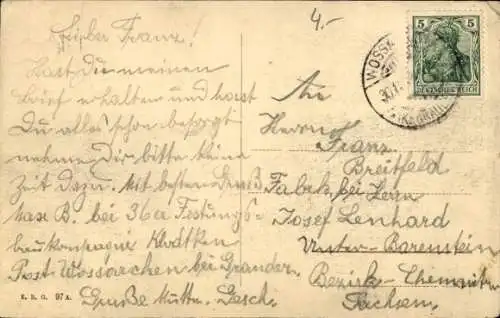 4.-
Lieber Franz!
Hast Du meinen
Brief erhalten und hast
Du alles schon besorgt
nehme Dir bitte keine
Zeit dazu. Mit besten Gruß
Max B. bei 36er Festungs-
baukompagnie Klodtken
Post Wossarcken bei Graudenz.
Grüße Gesch.
E. B. G. 97 A.
5 5
DEUTSCHES REICH
WOSS
30.1.
(Kr. GRAU
An
Herrn
Franz
Breitfeld
Fabrik bei Herrn
Josef Lenhard
Unter-Barenstein
Bezirk-Chemnitz
Sachsen.